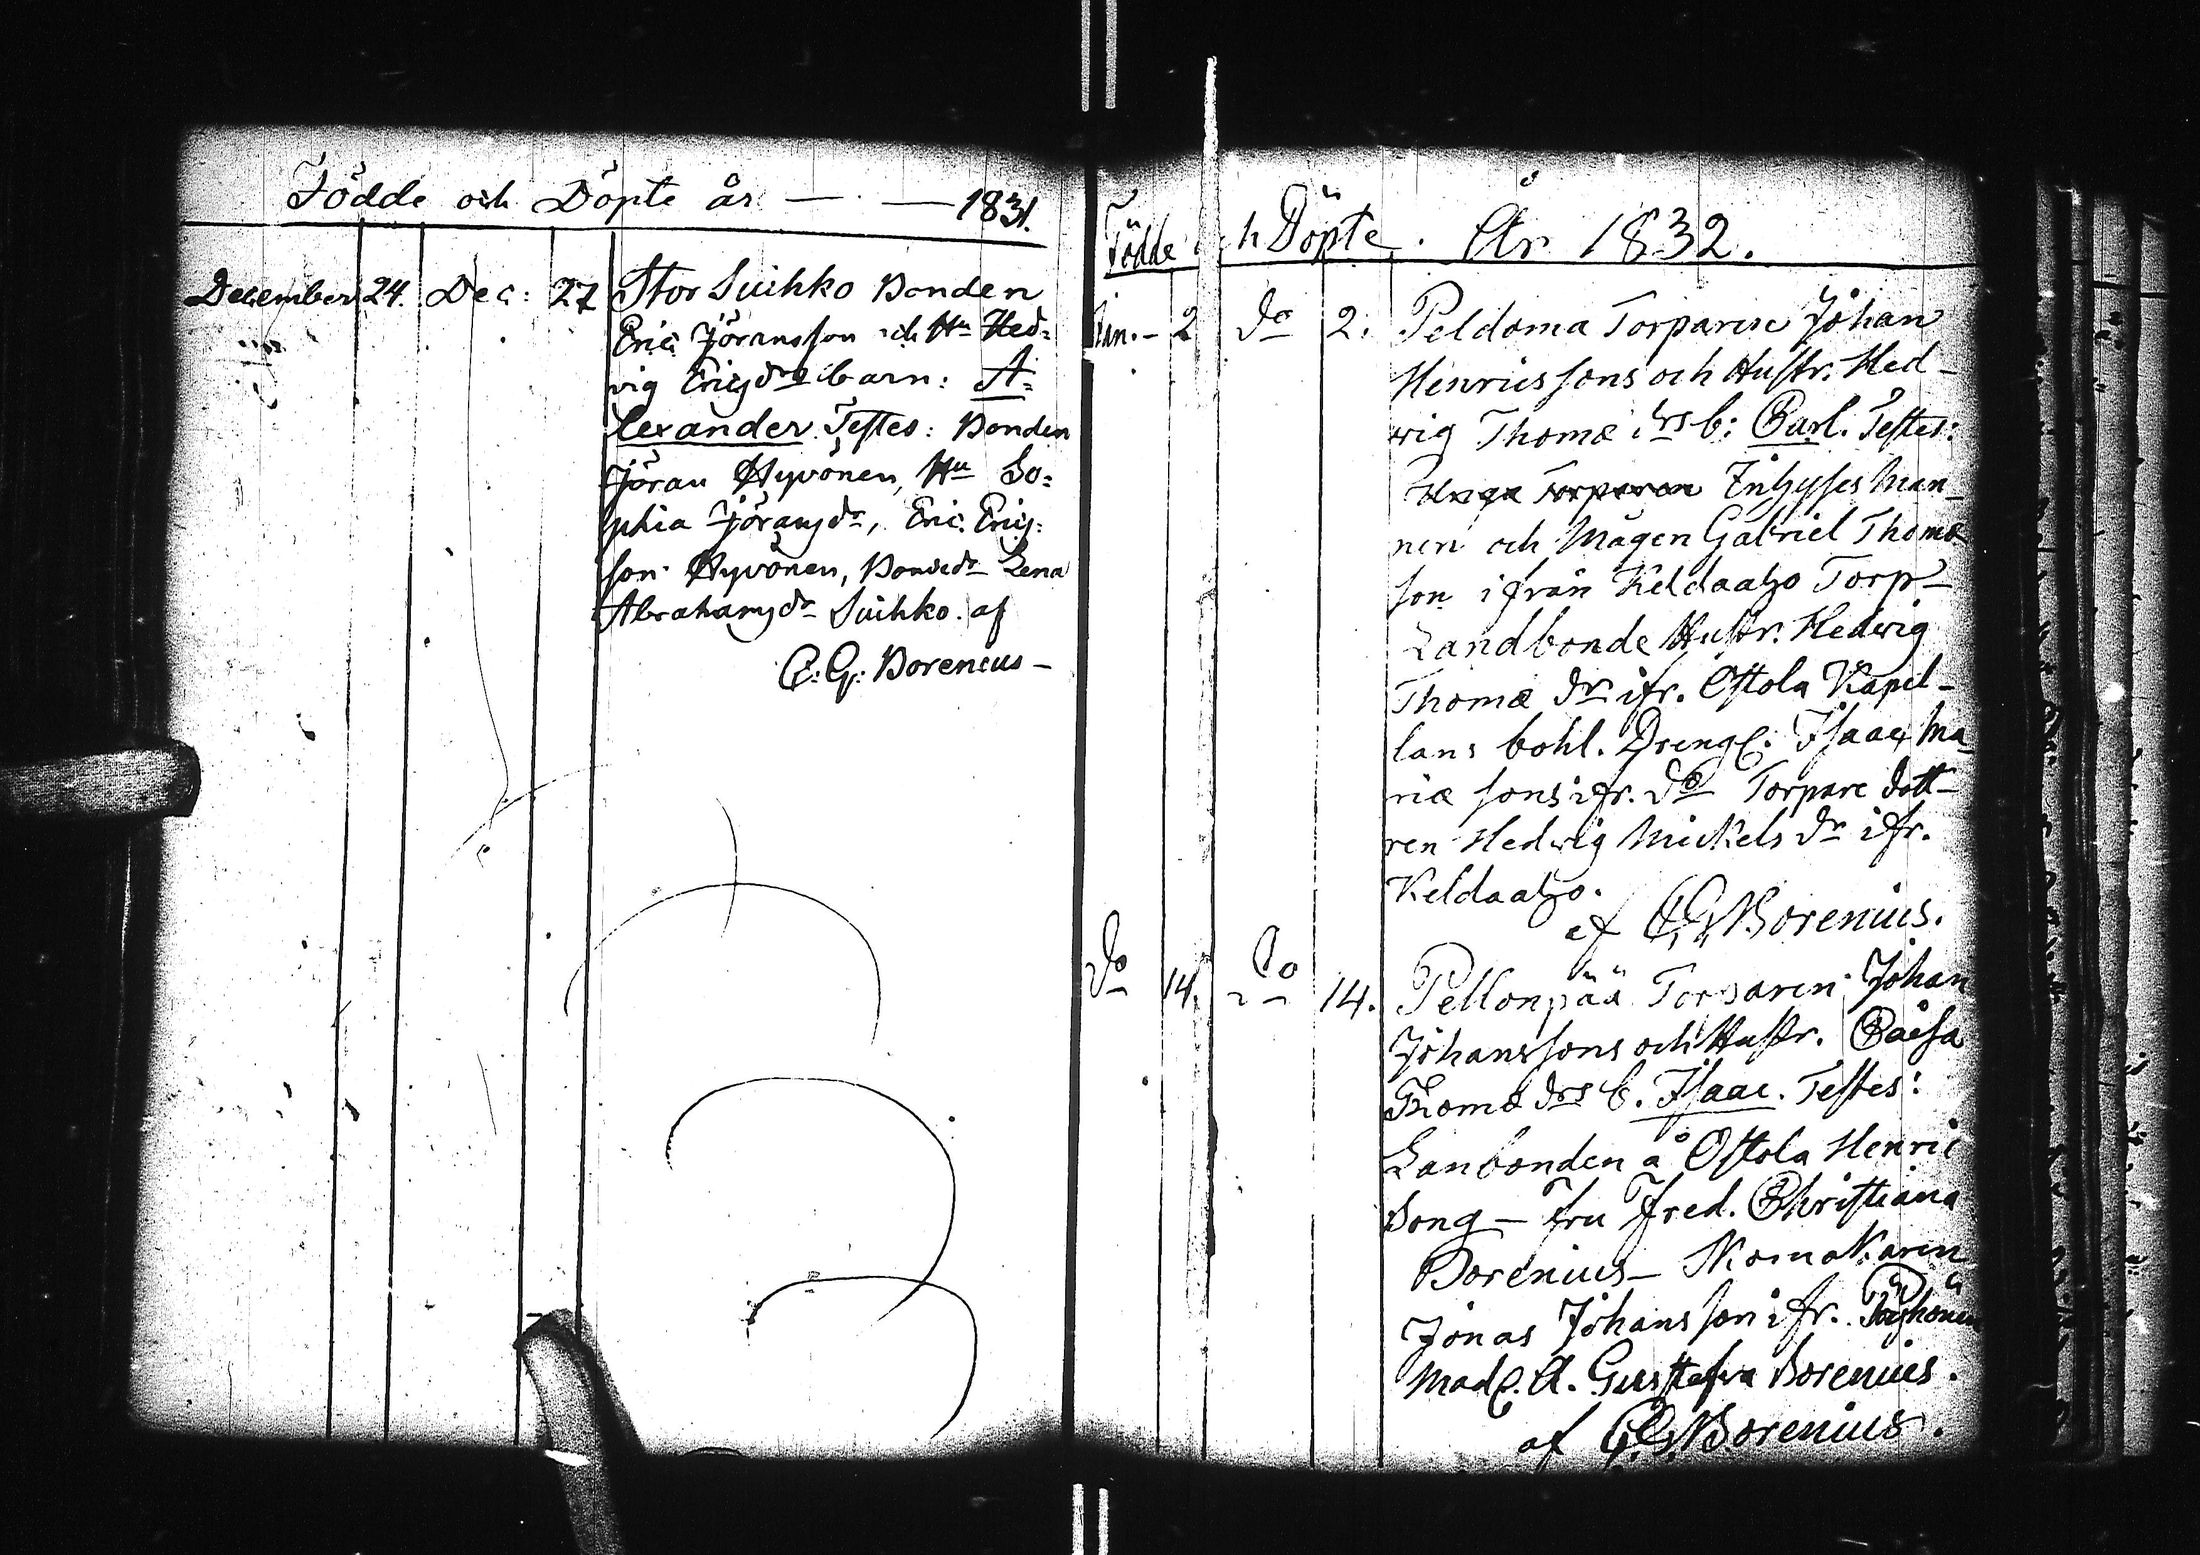 Födde och Döpte år — . — 1831.
December 24. Dec: 27 Stor Suihko Bonden
Eric Jöransson och Hu Hed=
vig Ericsdrs barn: A=
lexander. Testes: Bonden
Jöran Hyvönen, Hu So=
phia Jöransdr, Eric Erics:
son Hyvönen, Bondedr Lena
Abrahamsdr Suihko. af
C: G: Borenius —
Födde och Döpte. År 1832.
Jan. - 2 do 2. Peldoma Torparen Johan
Henricssons och Hustr. Hed-
wig Thomæ drs b: Carl. Testes:
Unga Torparen Inhyses Man-
nen och Mågen Gabriel Thomæ
son ifrån Keldaaho Torp-
Landbonde Hustr. Hedwig
Thomæ dr ifr. Ostola Kapel-
lans bohl. Drengl. Isaac Ma-
riæ sons ifr. do Torpare dott-
ren Hedwig Mickels dr ifr.
Keldaaho.
af C.G. Borenius.
do 14. do 14. Pellonpää Torparen Johan
Johanssons och Hustr. Caisa
Thomæ drs b. Isaac. Testes:
Lanbonden å Ostola Henric
Song — Fru Fred. Christiana
Borenius — Skomakaren
Jonas Johansson ifr.
Madl. A. Gustafva Borenius.
af C.G. Borenius.